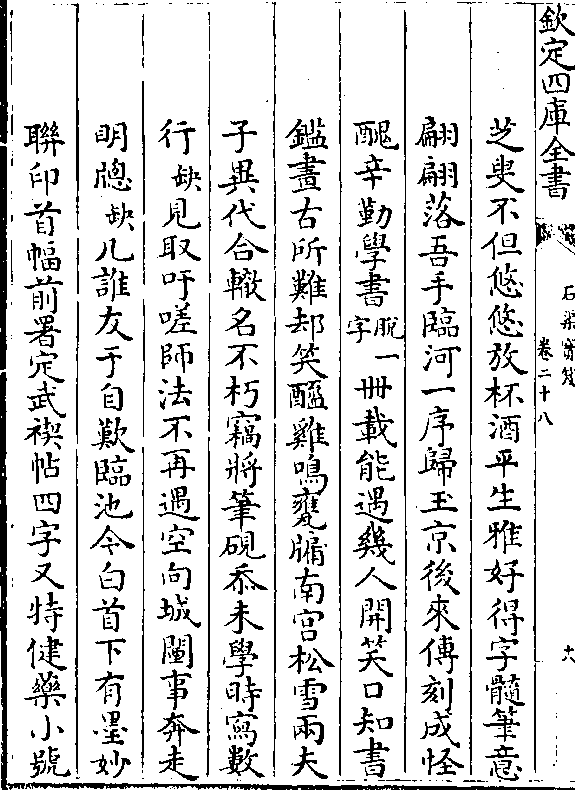 欽定四庫全書
石渠寶笈
卷二十八
芝㬰不但悠悠放杯酒平生雅好得字髓筆意
翩翩落吾手臨河一序歸玉京後來傳刻成怪
醜辛勤學書脫字一冊載能遇幾人開笑口知書
鑑畫古所難却笑醯雞鳴甕牖南宫松雪兩夫
子異代合轍名不朽竊將筆硯忝末學時寫數
行缺見取吁嗟師法不再遇空向城闉事奔走
明牕缺几誰友于自歎臨池今白首下有墨妙
聯印首幅前署定武禊帖四字又特健藥小號